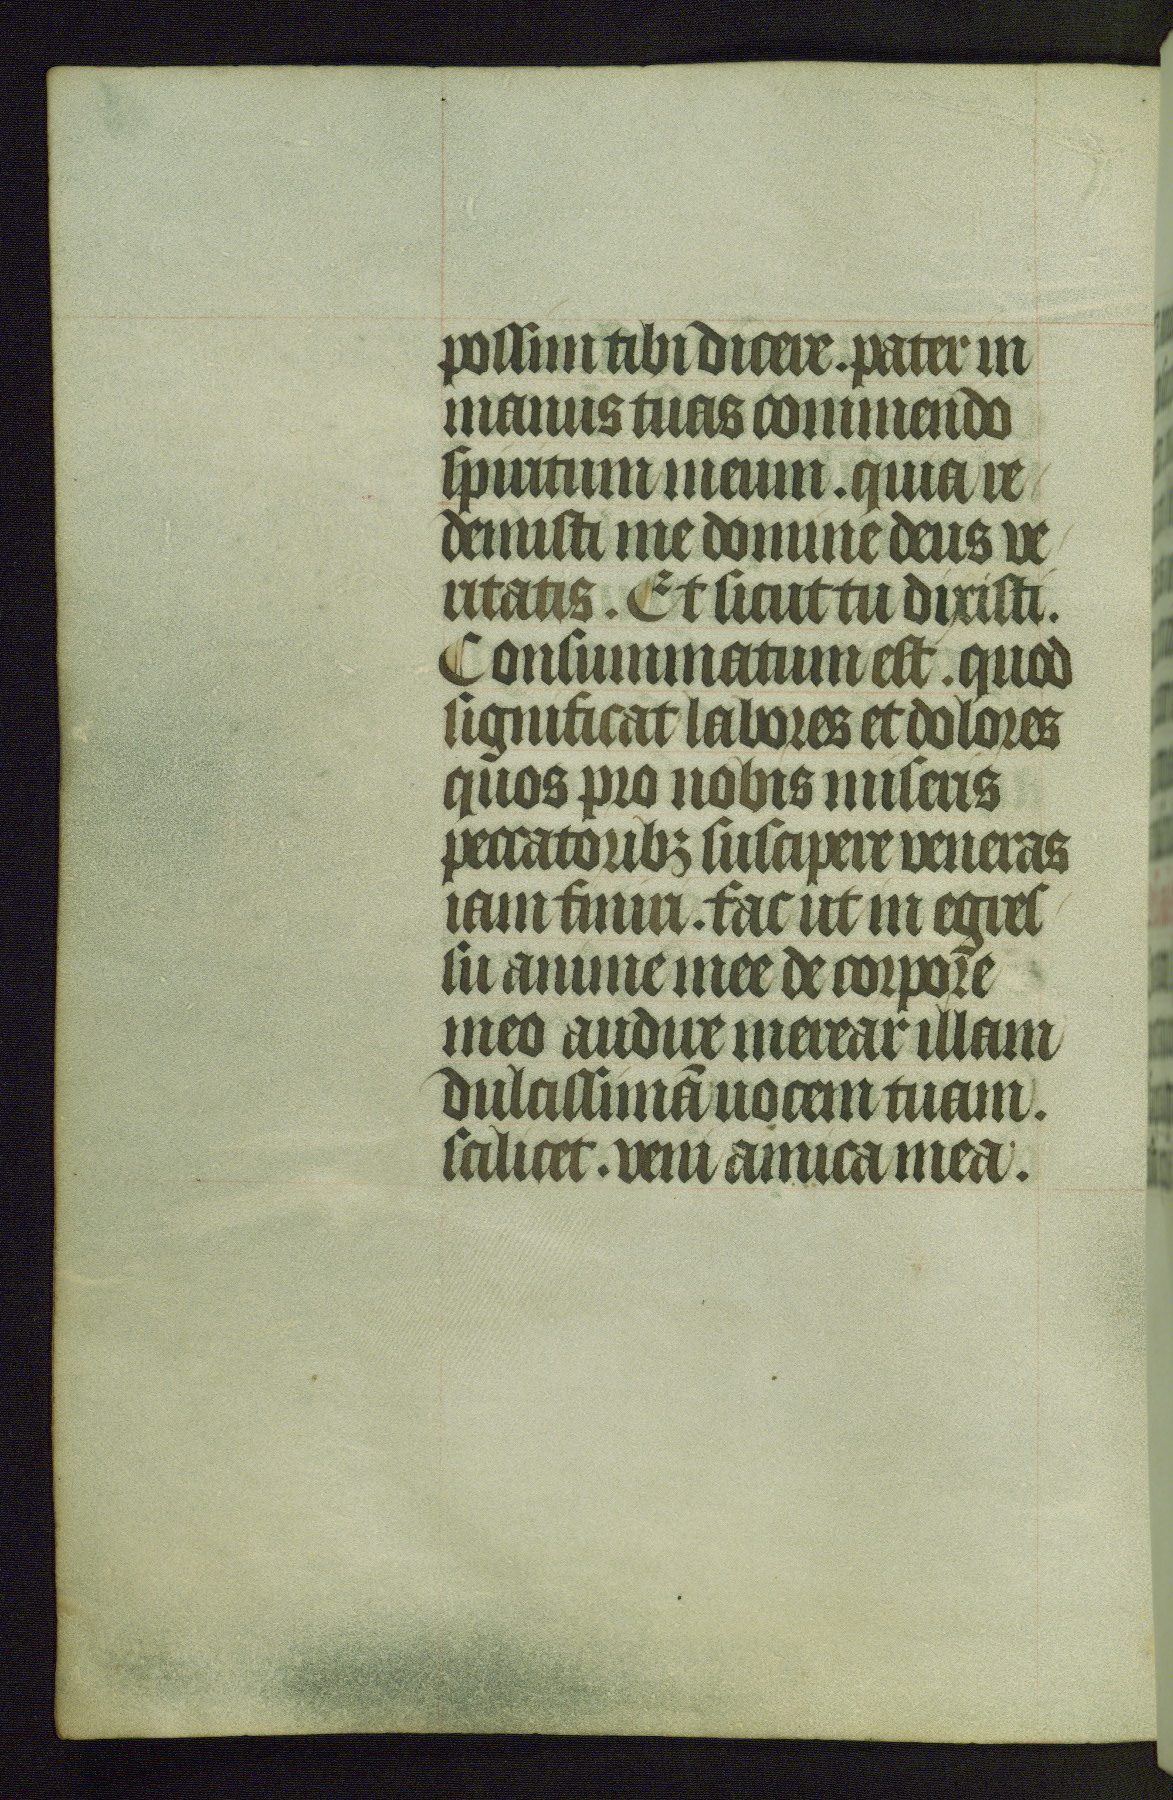 possim tibi dicere. pater in
manus tuas commendo
spiritum meum. quia re
demisti me domine deus ve
ritatis. Et sicut tu dixisti.
Consummatum est. quod
significat labores et dolores
quos pro nobis miseris
peccatoribꝫ suscipere veneras
iam finiri. fac ut in egres
su anime mee de corpore
meo audire merear illam
dulcissimā uocem tuam.
scilicet. veni amica mea.